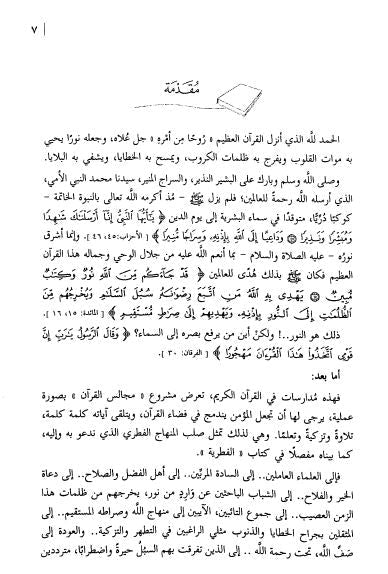 ٧
مُقَدِّمَة
الحمد للَّه الذي أنزل القرآن العظيم « رُوحًا مِن أمْرِه » جل عُلاه، وجعله نورًا يحيي
به موات القلوب ويفرج به ظلمات الكروب، ويمسح به الخطايا، ويشفي به البلايا.
وصلى اللَّه وسلم وبارك على البشير النذير، والسراج المنير، سيدنا محمد النبي الأمي،
الذي أرسله اللَّه رحمةً للعالمين؛ فلم يزل ﷺ - مُذ أكرمه اللَّه تعالى بالنبوة الخاتمة -
كوكبًا دُرِّيًّا، متوقدًا في سماء البشرية إلى يوم الدين ﴿ يَٰٓأَيُّهَا ٱلنَّبِيُّ إِنَّآ أَرْسَلْنَٰكَ شَٰهِدًا
وَمُبَشِّرًا وَنَذِيرًا ۝ وَدَاعِيًا إِلَى ٱللَّهِ بِإِذْنِهِۦ وَسِرَاجًا مُّنِيرًا ﴾ [الأحزاب:٤٥، ٤٦]. وإنما أشرق
نورُه - عليه الصلاة والسلام - بما أنعم اللَّه عليه من جلال الوحي وجماله هذا القرآن
العظيم فكان ﷺ بذلك هُدًى للعالمين ﴿ قَدْ جَآءَكُم مِّنَ ٱللَّهِ نُورٌ وَكِتَٰبٌ
مُّبِينٌ ۝ يَهْدِى بِهِ ٱللَّهُ مَنِ ٱتَّبَعَ رِضْوَٰنَهُۥ سُبُلَ ٱلسَّلَٰمِ وَيُخْرِجُهُم مِّنَ
ٱلظُّلُمَٰتِ إِلَى ٱلنُّورِ بِإِذْنِهِۦ وَيَهْدِيهِمْ إِلَىٰ صِرَٰطٍ مُّسْتَقِيمٍ ﴾ [المائدة: ١٥، ١٦].
ذلك هو النور..! ولكنْ أين من يرفع بصره إلى السماء؟ ﴿ وَقَالَ ٱلرَّسُولُ يَٰرَبِّ إِنَّ
قَوْمِى ٱتَّخَذُوا۟ هَٰذَا ٱلْقُرْءَانَ مَهْجُورًا ﴾ [الفرقان: ٣٠].
أما بعد:
فهذه مُدارسات في القرآن الكريم، تعرض مشروع « مجالس القرآن » بصورة
عملية، يرجى لها أن تجعل المؤمن يندمج في فضاء القرآن، ويتلقى آياته كلمة كلمة،
تلاوةً وتزكيةً وتعلمًا. وهي لذلك تمثل صلب المنهاج الفطري الذي ندعو به وإليه،
كما بيناه مفصلًا في كتاب « الفطرية ».
فإلى العلماء العاملين.. إلى السادة المربِّين.. إلى أهل الفضل والصلاح.. إلى دعاة
الخير والفلاح.. إلى الشباب الباحثين عن وَارِدٍ من نور، يخرجهم من ظلمات هذا
الزمن العصيب.. إلى جموع التائبين، الآيبين إلى منهاج اللَّه وصراطه المستقيم.. إلى
المثقلين بجراح الخطايا والذنوب مثلي الراغبين في التطهر والتزكية.. والعودة إلى
صَفِّ اللَّه، تحت رحمة اللَّه .. إلى الذين تفرقت بهم السبُلُ حيرةً واضطرابًا، مترددين